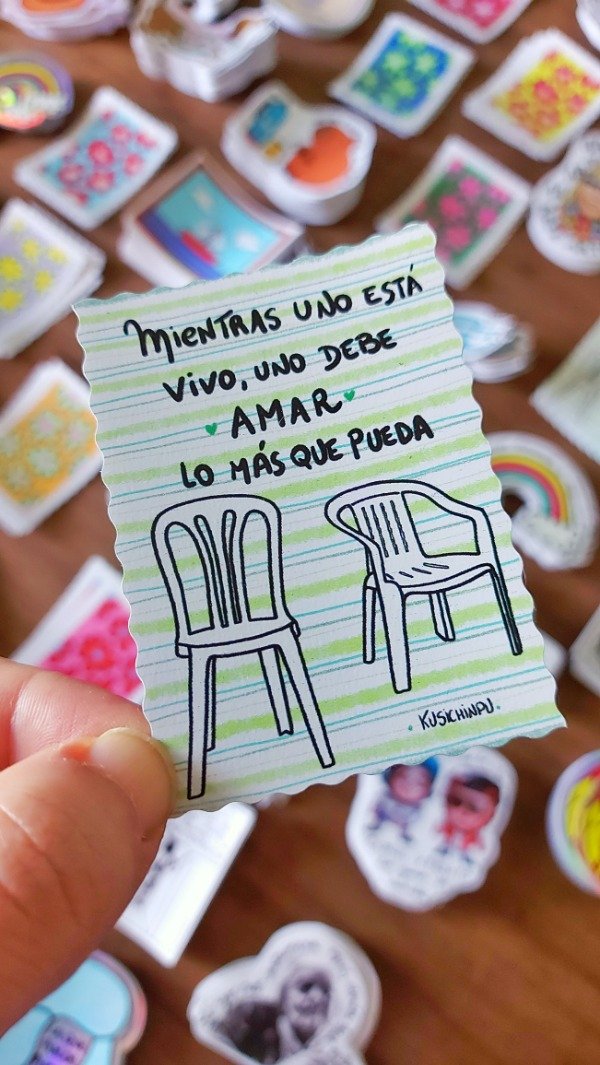 MIENTRAS UNO ESTÁ
VIVO, UNO DEBE
AMAR
LO MÁS QUE PUEDA
KUSICHINPU.